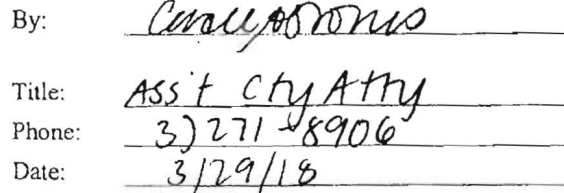 By:
Title: Ass't Cty Atty
Phone: 3)271-8906
Date: 3/29/18